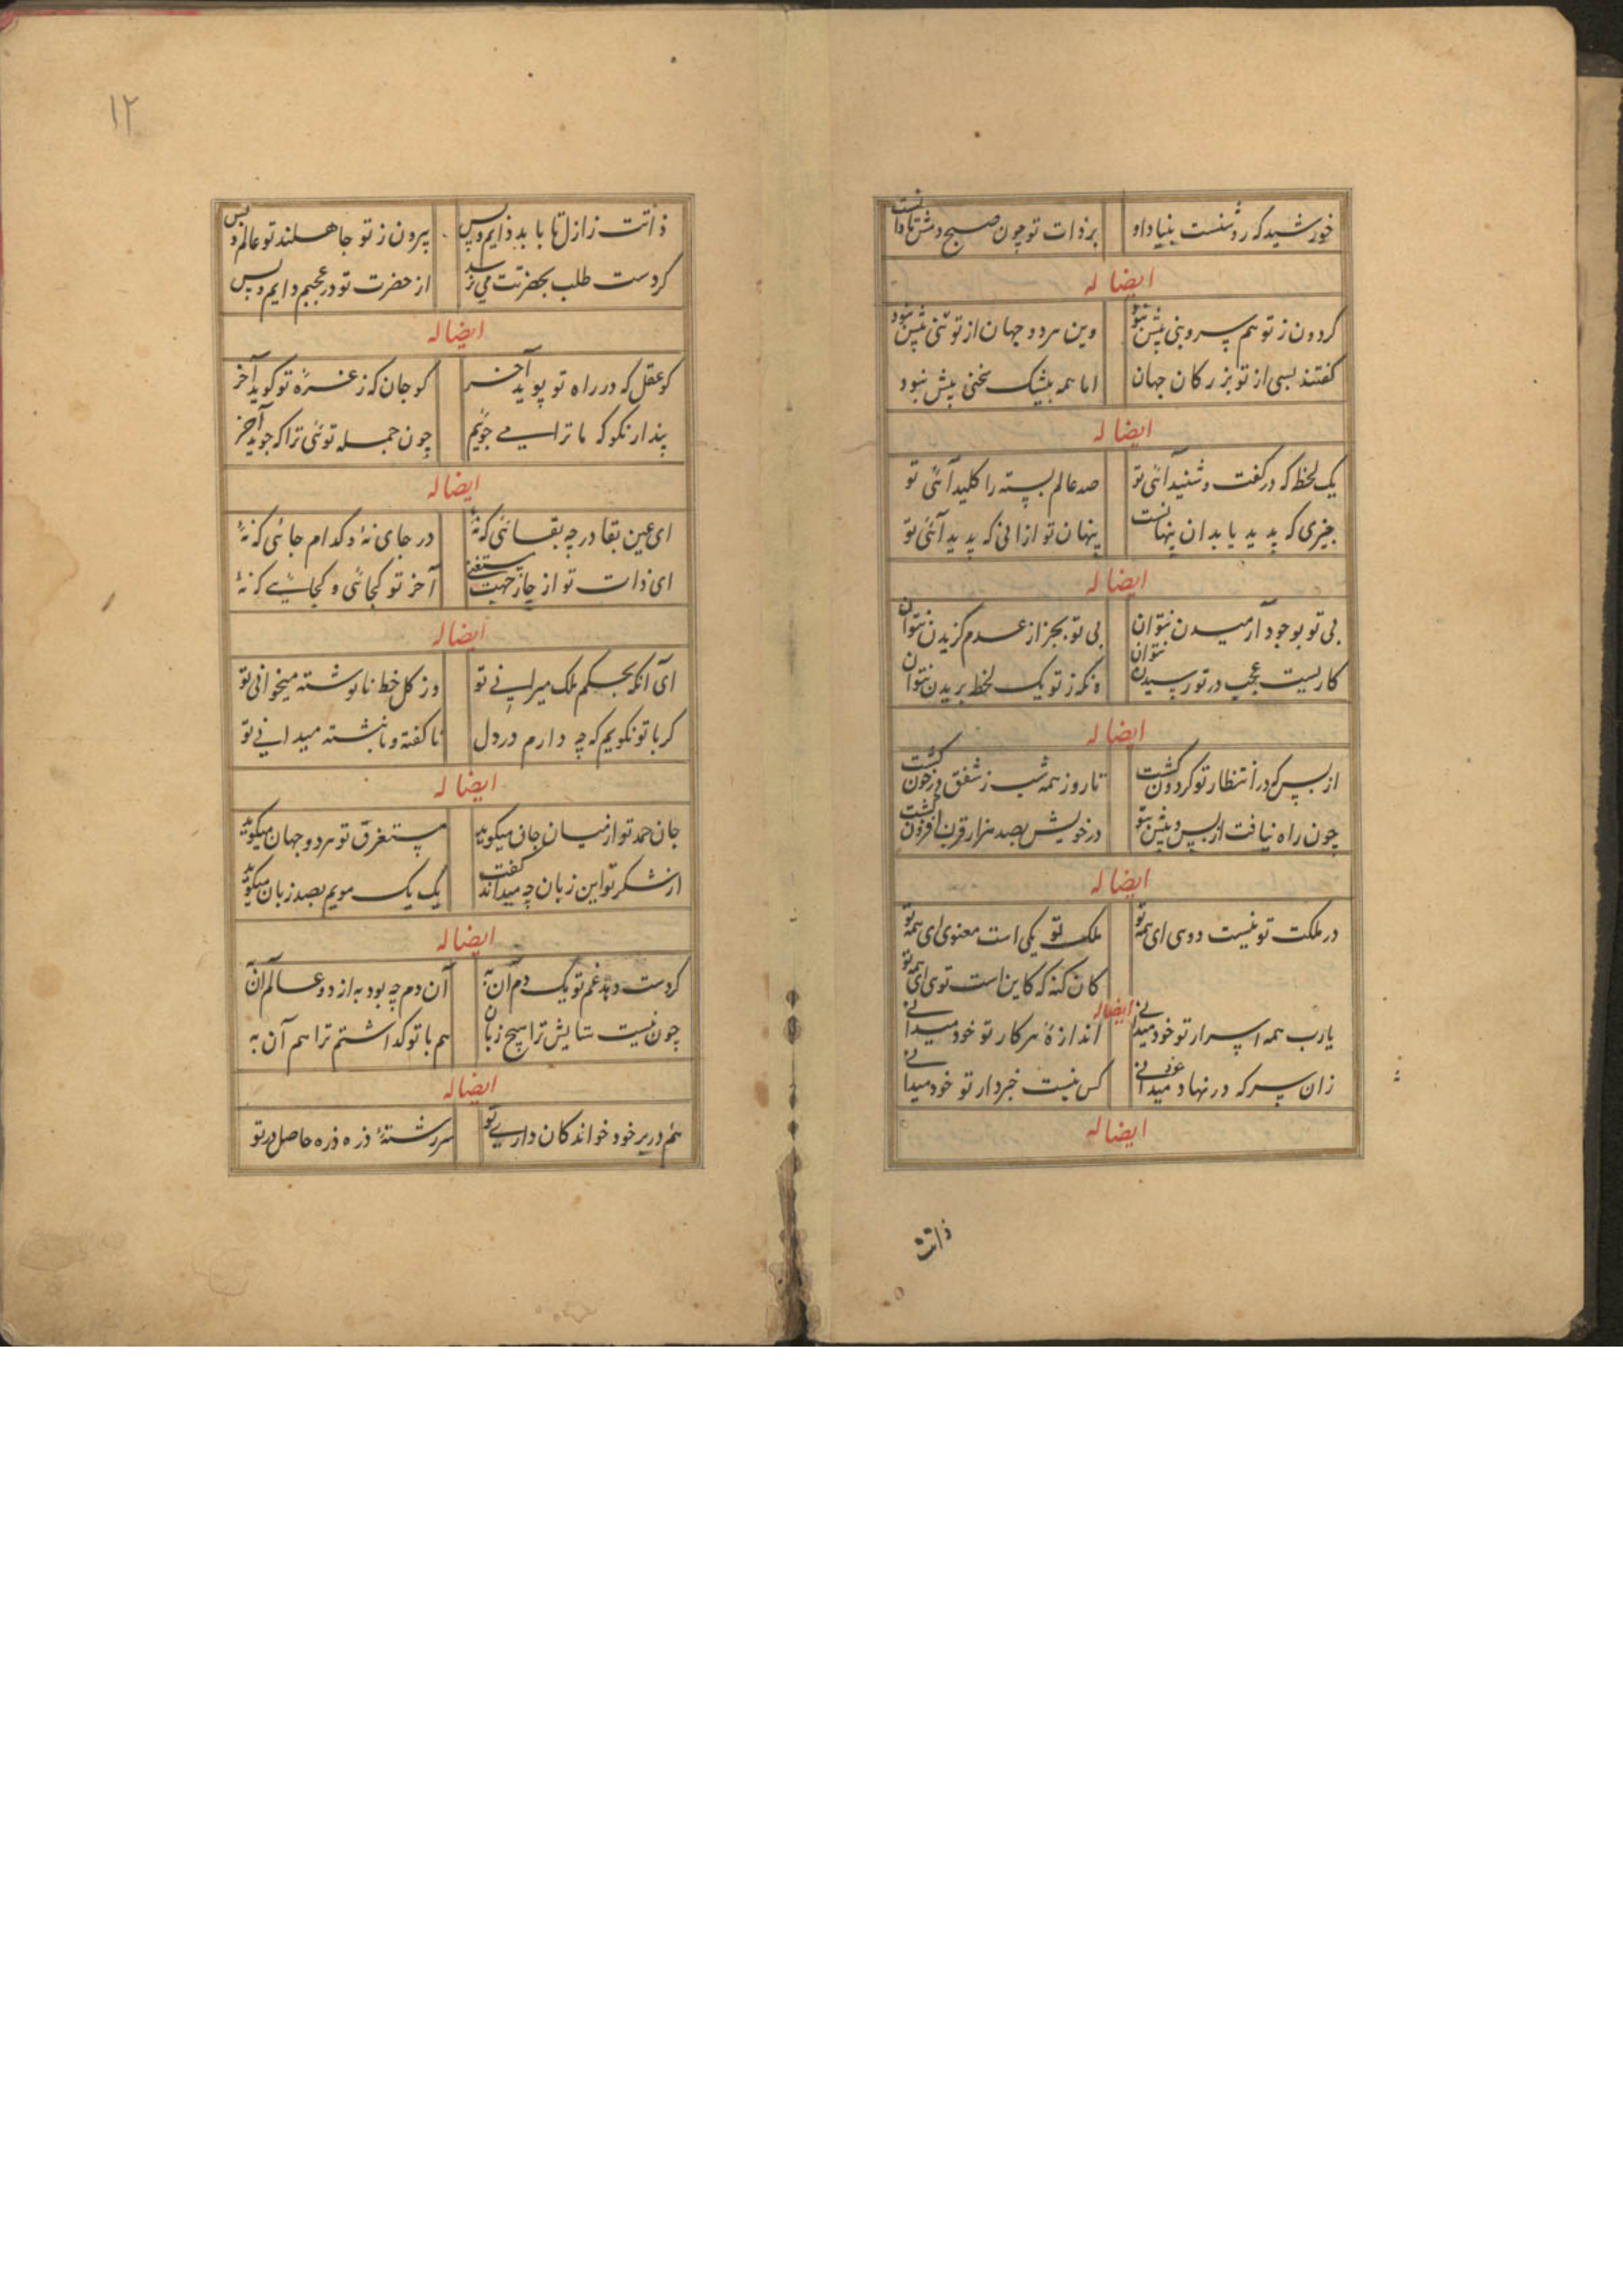 خورشید که روشنست بنیاد او بر ذات تو چون صبح دمش تا دانست
ایضا له
گردون ز تو هم سر و بنی بیش نبود وین هر دو جهان از تو تنی بیش نبود
گفتند بسی از تو بزرگان جهان اما همه بیشک سخنی بیش نبود
ایضا له
یک لحظه که در گفت و شنید آئی تو صد عالم بسته را کلید آئی تو
چیزی که پدید یابد ان پنهانست پنهان تو ازانی که پدید آئی تو
ایضا له
بی تو بوجود آرمیدن نتوان بی تو بجز از عدم گزیدن نتوان
کاریست عجب در تو رسیدن نتوان وانگه ز تو یک لحظه بریدن نتوان
ایضا له
از بس که در انتظار تو گردون گشت تا روز همه شب ز شفق در خون گشت
چون راه نیافت از پس و پیش بتو در خویش بصد هزار قرن افزون گشت
ایضا له
در ملکت تو نیست دوی ای همه تو ملک تو یکی است معنوی ای همه تو
کان کنه که کاین است توی ای همه تو
ایضا له
یارب همه اسرار تو خود میدانی اندازهٔ هر کار تو خود میدانی
زان سر که در نهاد میدانی کس نیست خبردار تو خود میدانی
ایضا له
ذاتت
۱۲
ذاتت ز ازل تا بابد دایم و بس بیرون ز تو جاهلند تو عالم و بس
کردست طلب بحضرتت می نرسد از حضرت تو در عجبم دایم و بس
ایضا له
کو عقل که در راه تو پوید آخر کو جان که ز عزه تو گوید آخر
پندار نکو که ما ترا می جوئیم چون جمله توئی ترا که جوید آخر
ایضا له
ای عین بقا در چه بقائی که نهٔ در جای نهٔ و کدام جائی که نهٔ
ای ذات تو از جا و جهت مستغنی آخر تو کجائی و کجائی که نهٔ
ایضا له
ای آنکه بحکم ملک میرانی تو وز کل خط نانوشته میخوانی تو
گر با تو نگویم که چه دارم در دل ناگفته و نانبشته میدانی تو
ایضا له
جان حمد تو از میان جان میگوید مستغرق تو هر دو جهان میگوید
از شکر تو این زبان چه میداند گفت یک یک مویم بصد زبان میگوید
ایضا له
گر دست دهد غم تو یک دم آن به آن دم چه بود به از دو عالم آن به
چون نیست ستایش ترا هیچ زبان هم با تو گذاشتم ترا هم آن به
ایضا له
هم در بر خود خواندگان داری تو سررشتهٔ ذره ذره حاصل در تو